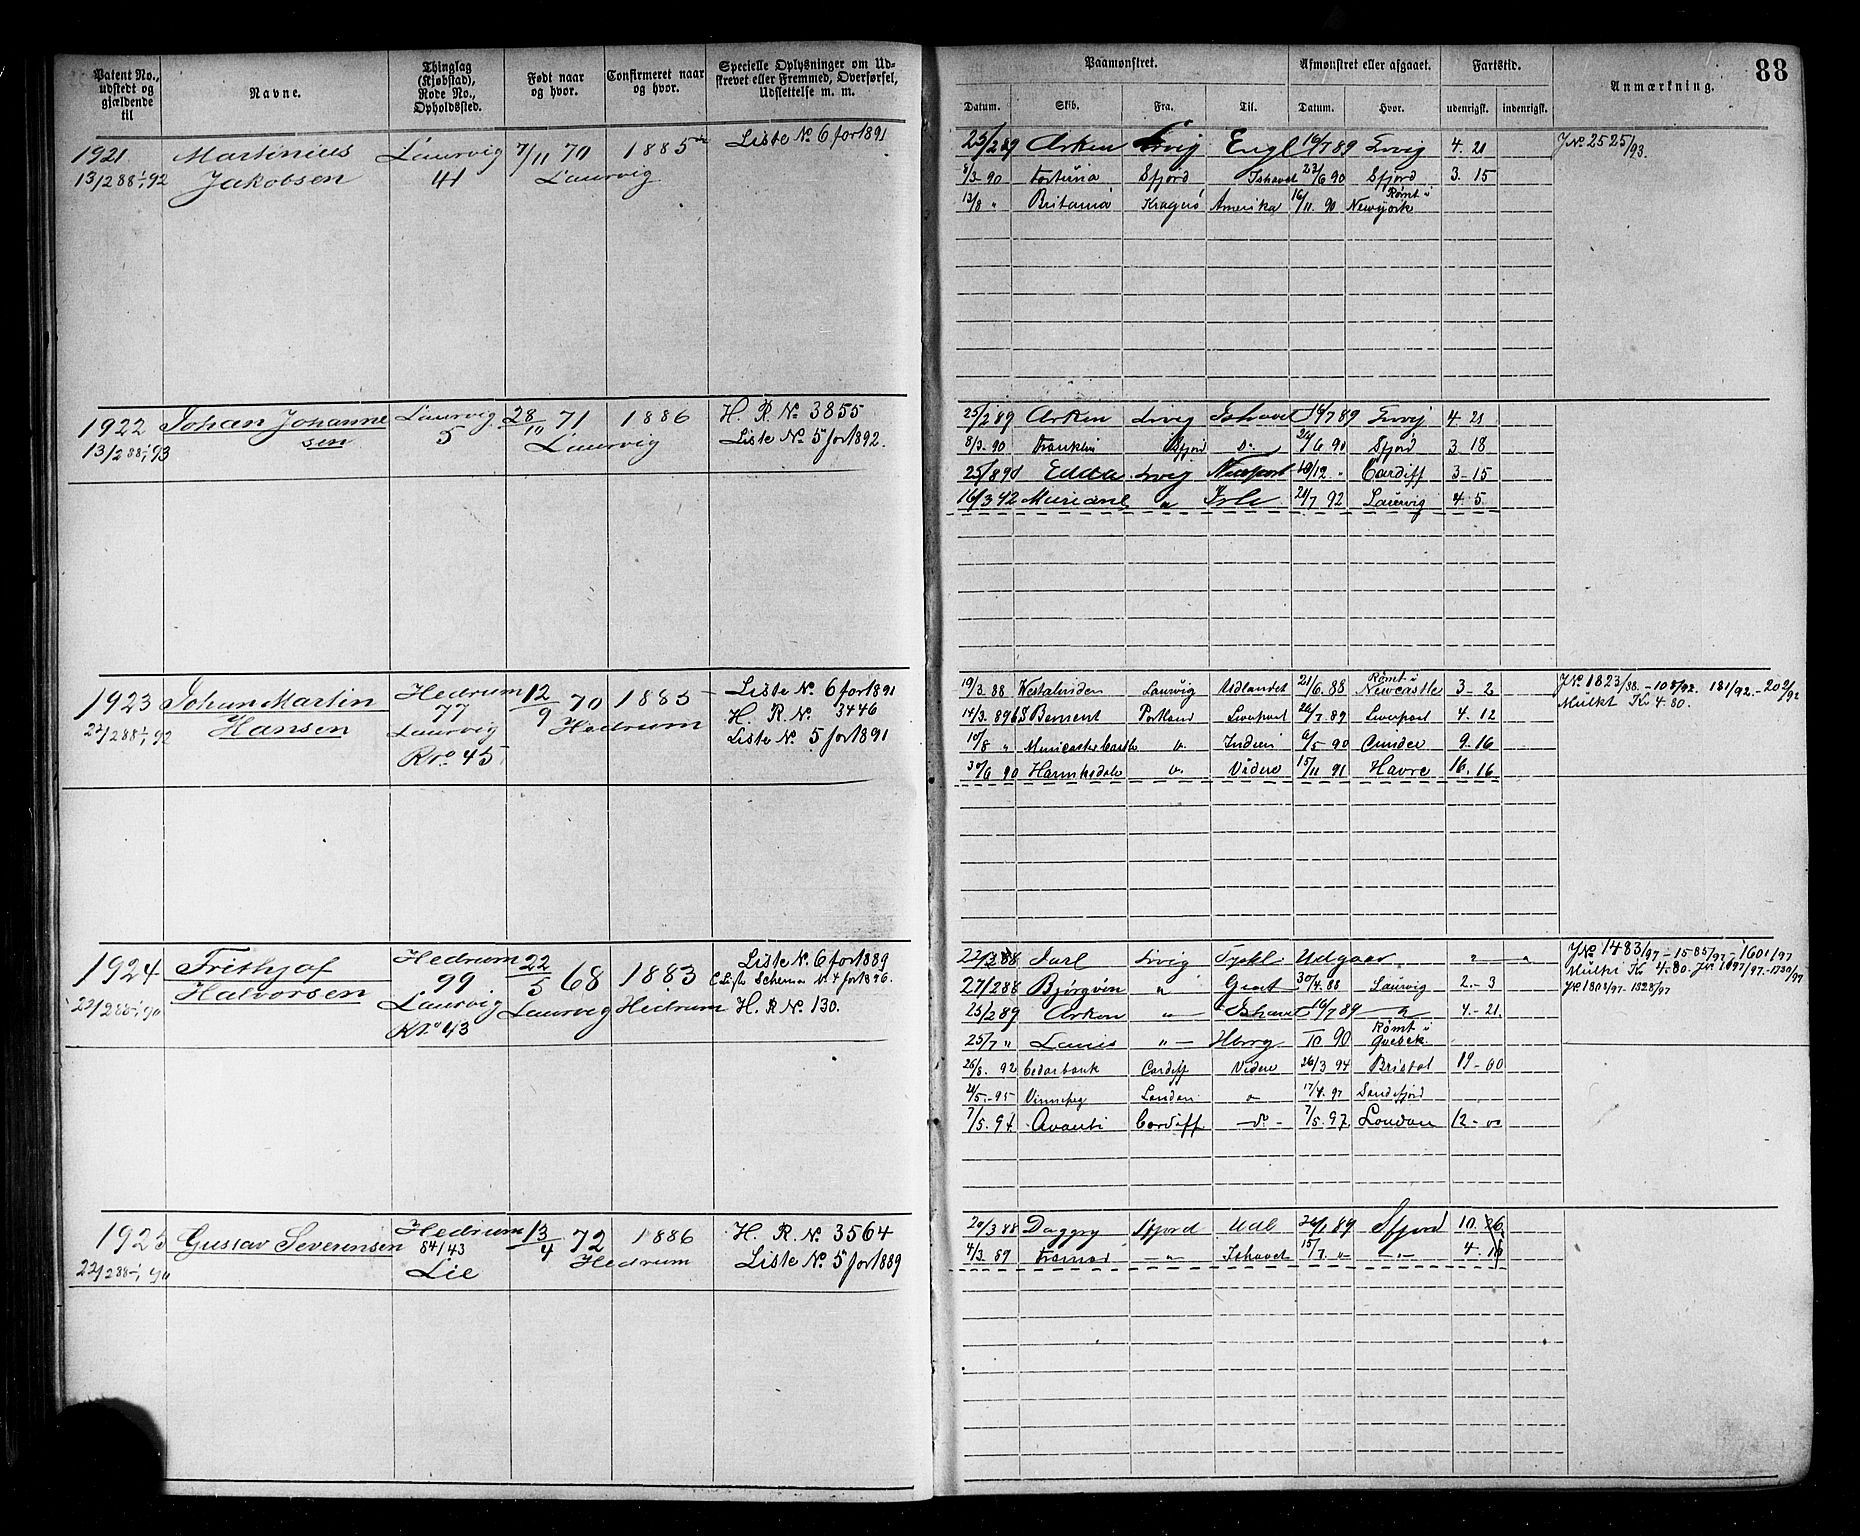 Patent No., udstedt og gjældende til
Navne.
Thinglag (Kjøbstad), Rode No., Opholdssted.
Født naar og hvor.
Confirmeret naar og hvor.
Specielle Oplysninger om Udskrevet eller Fremmed, Overførsel, Udslettelse m. m.
Paamønstret.
Afmønstret eller afgaaet.
Fartstid.
Anmærkning.
88
Datum. Skib. Fra. Til. Datum. Hvor. udenrigsk. indenrigsk.
1921 Martinius Laurvig 7/11 70 1885 Liste No. 6 for 1891
13/2 88 1/1 92 Jakobsen 41 Laurvig
25/2 89 Arken Lrvig Engl 16/7 89 Lrvig 4. 21 J.No. 2525/93.
8/3. 90 Fortuna Sfjord Ishavet 22/6 90 Sfjord 3. 15
13/8 " Britania Kragerö Amerika 16/11. 90 Rømt i Newyork
1922 Johan Johanne 28/10 71 1886 H. R. No. 3855
Laurvig
13/2 88-1/1 93 sen 5 Laurvig Liste No. 5 for 1892.
25/2 89 Arken Lrvig Ishavet 16/7 89 Lrvig 4. 21
8/3. 90 Franklin Sfjord do 24/6 90 Sfjord 3 18
25/8 90 Edda Lrvig Newport 18/12 " Cardiff 3-15
16/3 92 " 21/7 92 Laurvig 4. 5
1923 Johan Martin Hedrum 12/9 70 1885 Liste No. 6 for 1891
Hansen 77 Hedrum H. R. No. 3446
22/2 88 1/1 92 Laurvig Liste No. 5 for 1891
R No. 45
19/3. 88 Laurvig Udlandet 21/6. 88 Rømt i Newcastle 3-2 J.No. 1823/88.-108/92. 181/92.-202/92
14/3. 89 Portland Liverpool 26/7. 89 Liverpool 4. 12 Mulkt Kr 4.80.
10/8 " Muncaster Castle " Indien 6/5 90 9. 16
30/6 90 " Videre 15/11 91 Havre 16. 16
1924 Frithjof Hedrum 22/5 68 1883 Liste No. 6 for 1889
Halvorsen 99 C Liste Schema No. 4 for 1896.
22/2 88-1/1 90 Laurvig Laurvig Hedrum H. R No. 130.
R No 43
22/3 88 Jarl Lrvig Tyskl Udgaar " " J.No. 1483/97-1585/97-1601/97
27/2 88 Bjørgvin " Gent 30/4. 88 Laurvig 2. 3 Mulkt Kr 4.80. J.No 1697/97.-1730/97
25/2 89 Arken " Ishavet 16/7 89 " 4-21.
25/7 " " 10 90 Rømt i
26/8. 92 Cedarbank Cardiff Videre 26/3 94 Bristol 19-00
21/5.-95 Vinnipeg London " 17/4. 97 Sandefjord
7/5. 94 Avanti Cardiff -do- 7/5. 97 London 12-00
1925 Gustav Severinsen Hedrum 13/4 72 1886 H. R. No. 3564
22/2 88-1/1 90 84/43 Hedrum Liste No. 5 for 1889
Lie
20/3 88 Daggry Sfjord Udl 26/1 89 Sfjord 10. 26
4/3. 89 " Ishavet 15/7. " -"- 4. 11